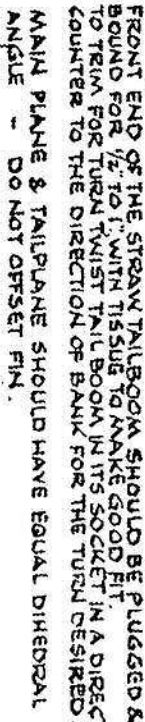 FRONT END OF THE STRAW TAILBOOM SHOULD BE PLUGGED &
BOUND FOR 1/2" TO 1" WITH TISSUE TO MAKE GOOD FIT.
TO TRIM FOR TURN TWIST TAILBOOM IN ITS SOCKET IN A DIREC
COUNTER TO THE DIRECTION OF BANK FOR THE TURN DESIRED.
MAIN PLANE & TAILPLANE SHOULD HAVE EQUAL DIHEDRAL
ANGLE - DO NOT OFFSET FIN.